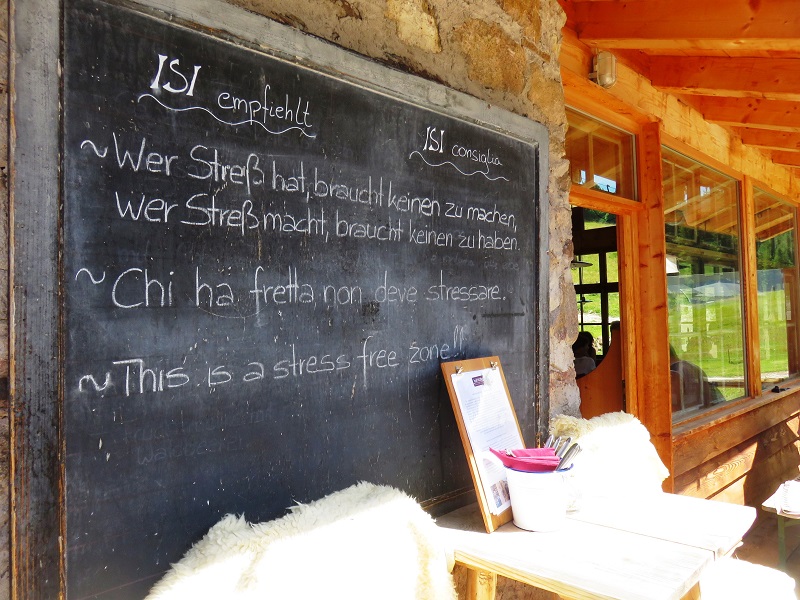 ISI empfiehlt
ISI consiglia
~Wer Streß hat, braucht keinen zu machen,
wer Streß macht, braucht keinen zu haben.
~ Chi ha fretta non deve stressare.
~This is a stress free zone!!